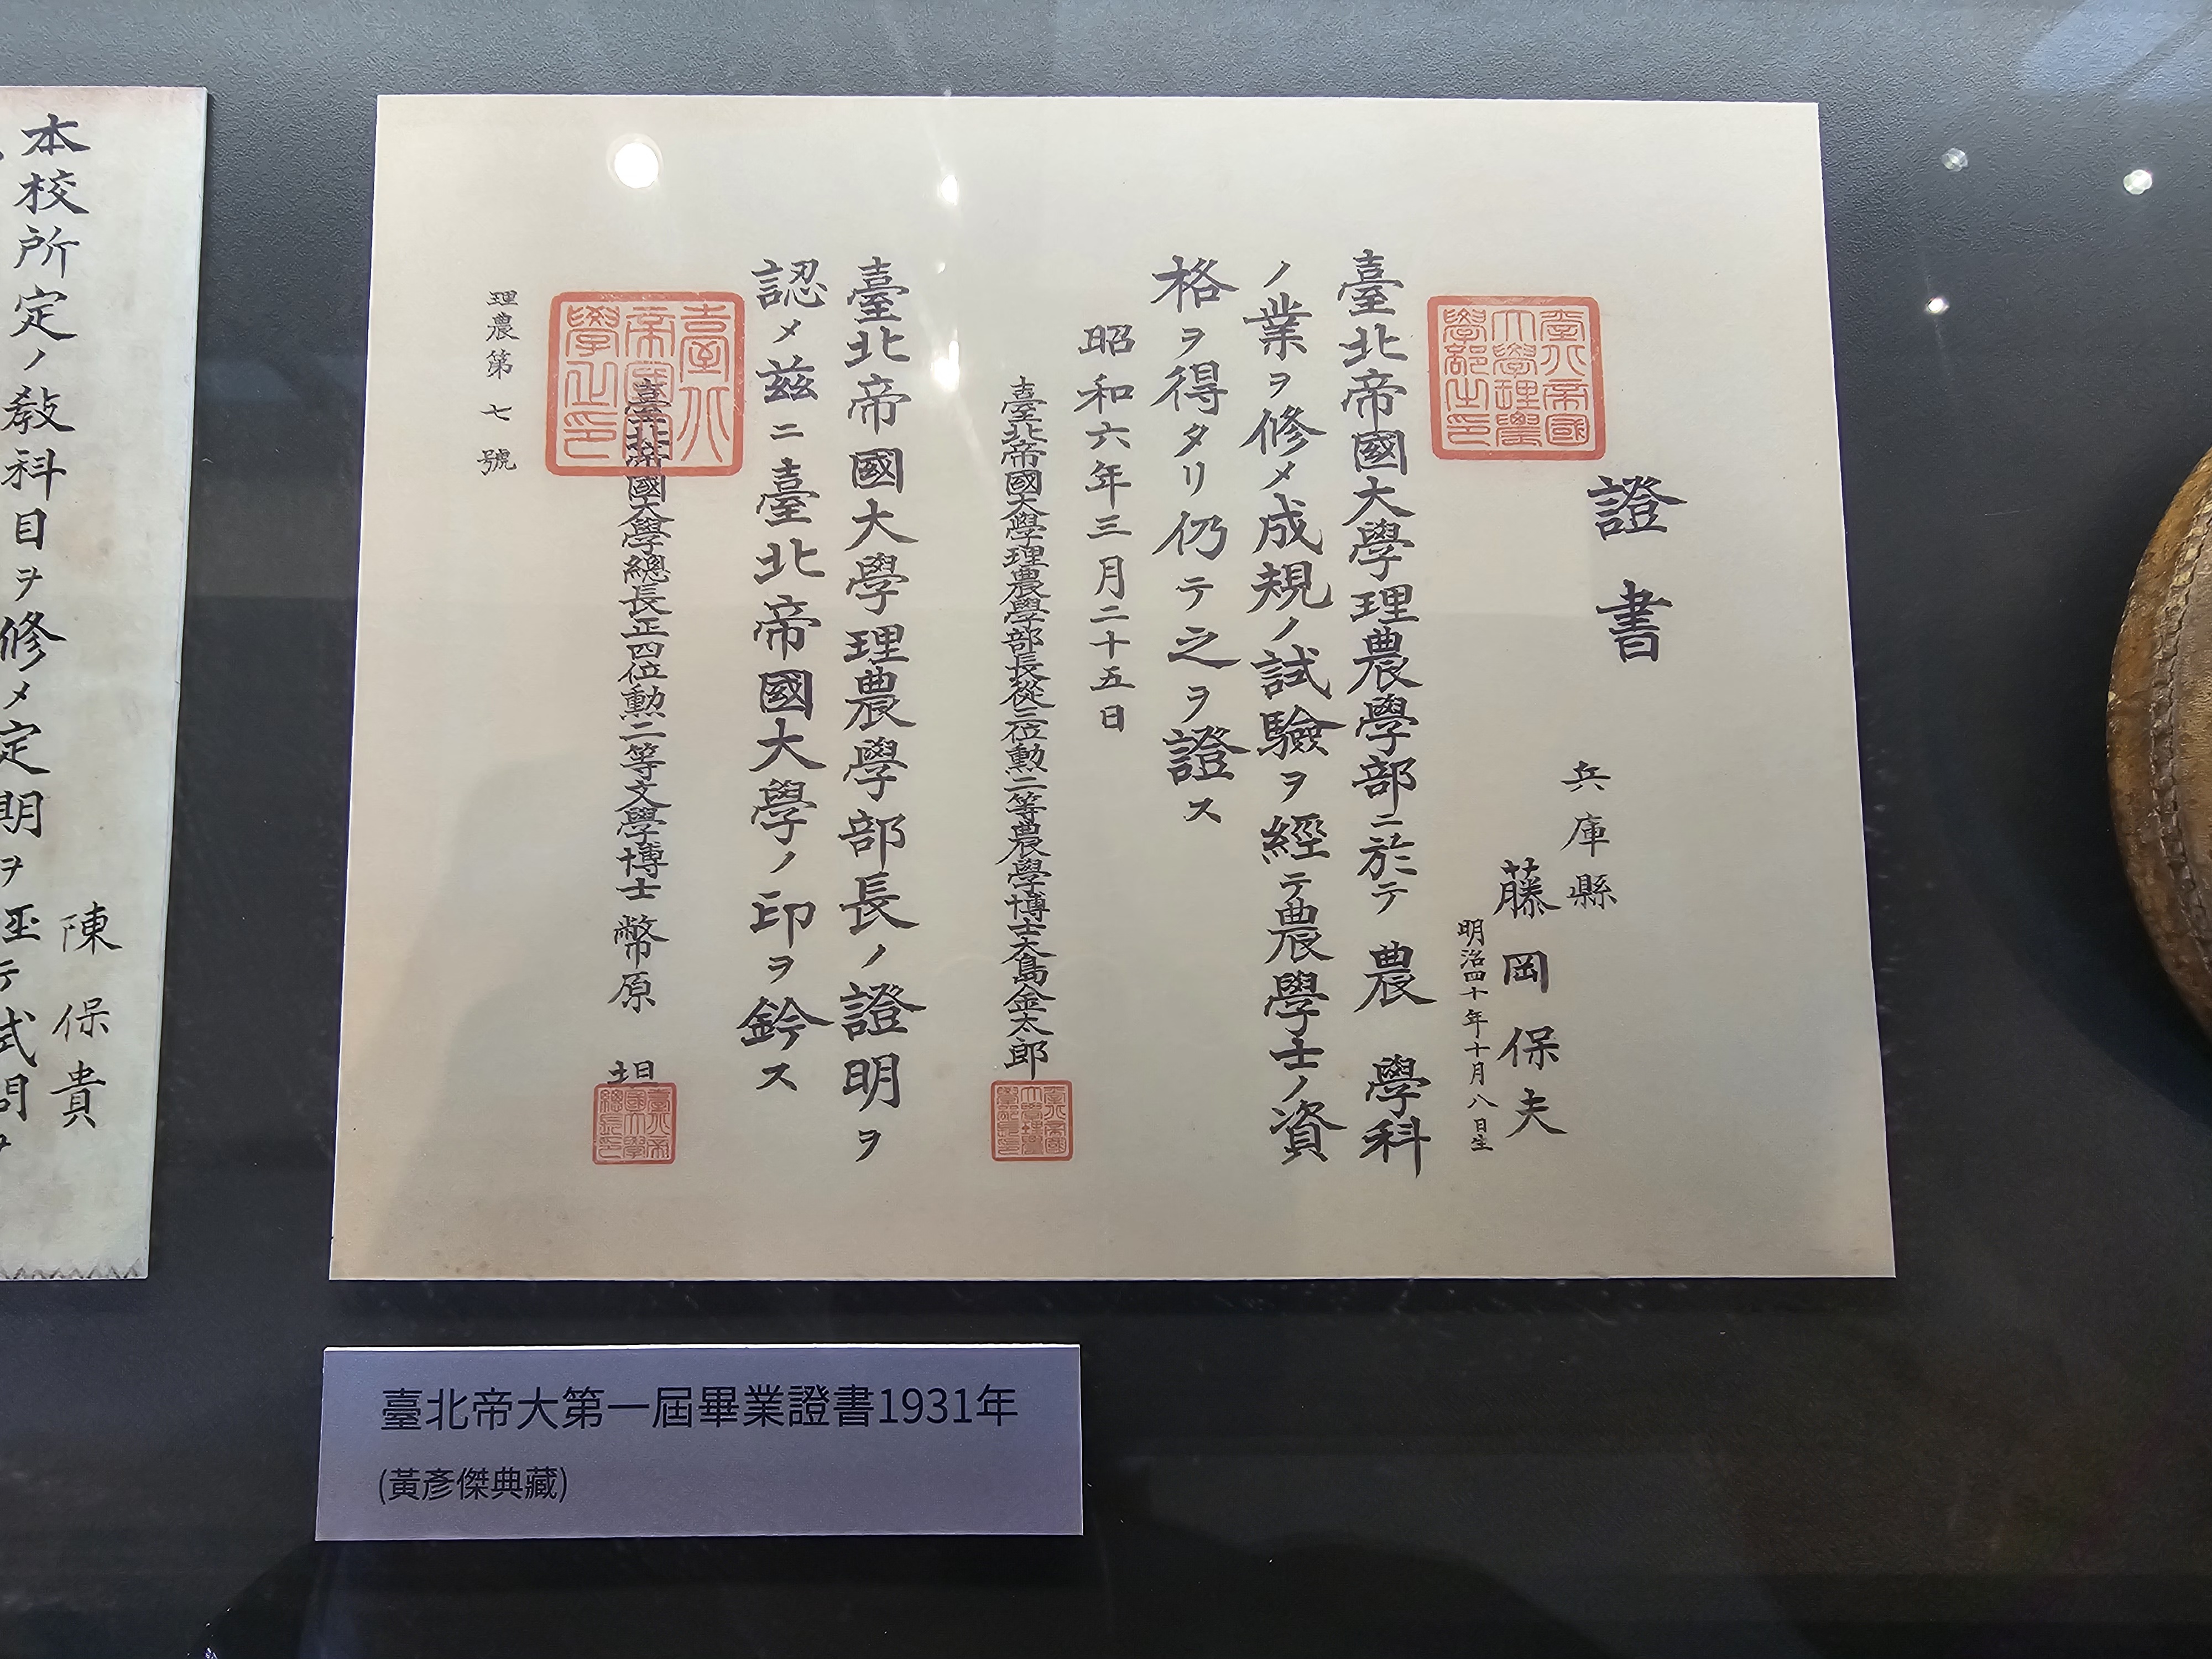 證書
兵庫縣
藤岡保夫
明治四十年十月八日生
臺北帝國大學理農學部ニ於テ農學科
ノ業ヲ修メ成規ノ試驗ヲ經テ農學士ノ資
格ヲ得タリ仍テ之ヲ證ス
昭和六年三月二十五日
臺北帝國大學理農學部長從三位勲二等農學博士大島金太郎
臺北帝國大學理農學部長ノ證明ヲ
認メ茲ニ臺北帝國大學ノ印ヲ鈐ス
臺北帝國大學總長正四位勲二等文學博士幣原坦
理農第七號
陳保貴
本校所定ノ敎科目ヲ修メ定期
臺北帝大第一屆畢業證書1931年
(黃彥傑典藏)